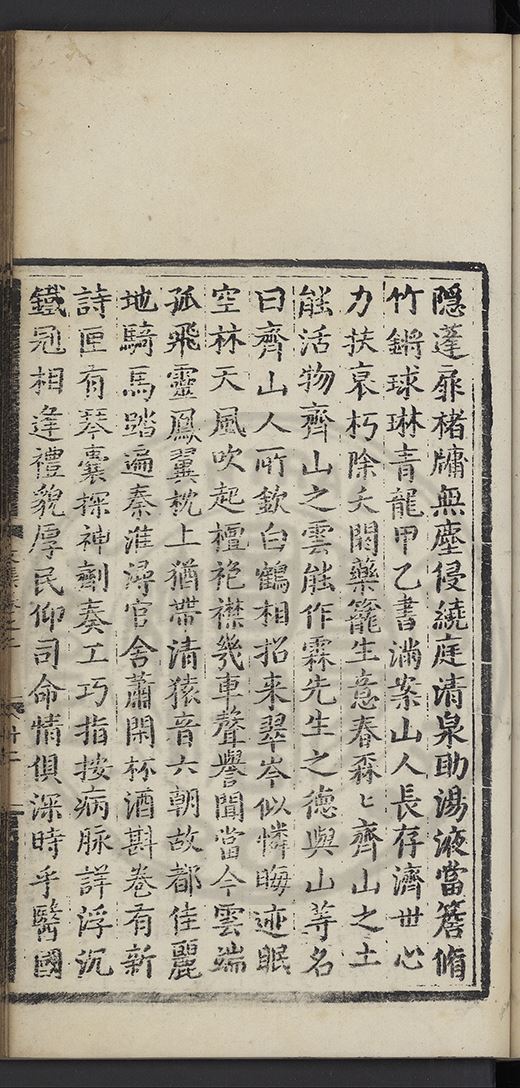 隱蓬扉楮牗無塵侵繞庭清泉助湯液當簷脩
竹鏘球琳青龍甲乙書滿案山人長存濟世心
力扶衰朽除夭閼藥籠生意春森〻齊山之土
能活物齊山之雲能作霖先生之德與山等名
曰齊山人所欽白鶴相招来翠岑似憐晦迹眠
空林天風吹起檀袍襟幾車聲譽聞當今雲端
孤飛靈鳳翼枕上猶帶清猿音六朝故都佳麗
地騎馬踏遍秦淮潯官舍蕭閑杯酒斟卷有新
詩匣有琴囊探神劑奏工巧指按病脉詳浮沉
鐵冠相逢禮貌厚民仰司命情俱深時乎醫國